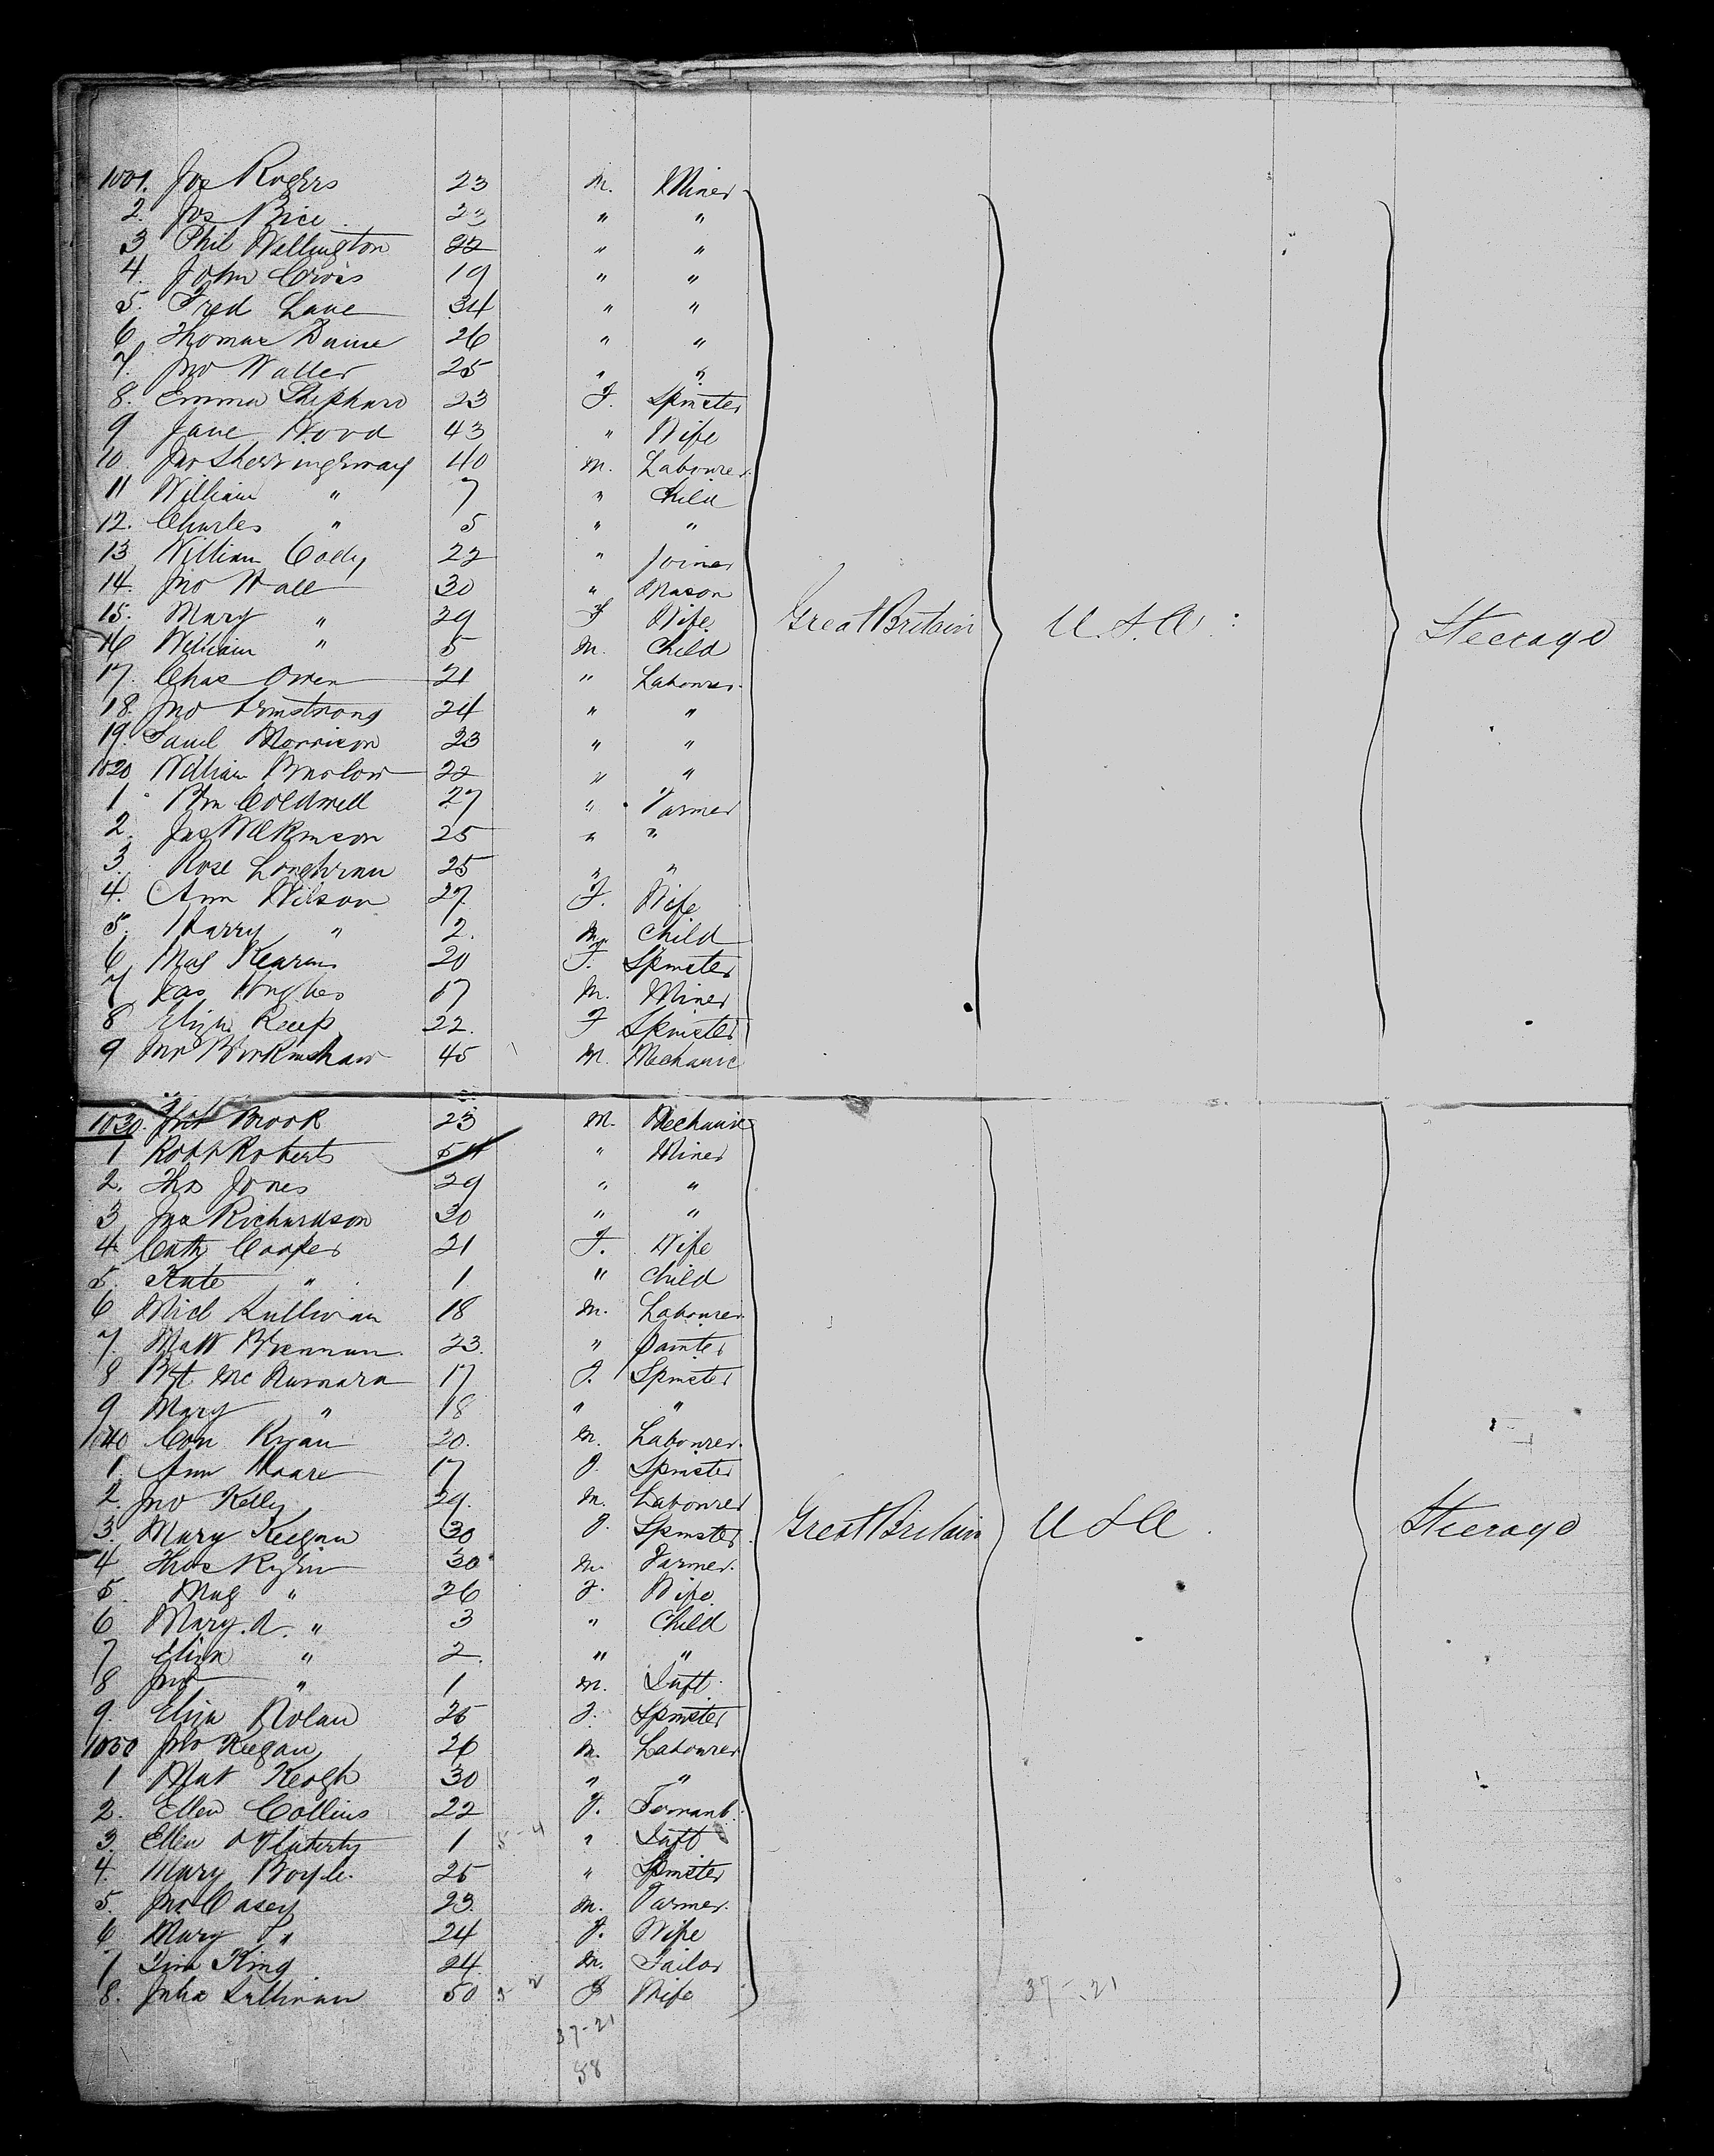 1001. Jos Rogers 23 M. Miner
2. Jos Rice 23 " "
3 Phil Wellington 22 " "
4. John Cross 19 " "
5. Fred Lane 34 " "
6 Thomas 26 " "
7. Jno Waller 25 " "
8. Emma Shephard 23 F. Spinster
9 Jane Wood 43 " Wife
10. Jno 40 M. Labourer
11 William " 7 " Child
12. Charles " 5 " "
13 William Cody 22 " Joiner
14. Jno Wall 30 " Mason
15. Mary " 29 F Wife Great Britain U.S.A. Steerage
16 William " 5 M. Child
17. Chas Owen 21 " Labourer
18. Jno Armstrong 24 " "
19. Saml Morrison 23 " "
1020 William 22 " "
1 Wm Coldwell 27 " Farmer
2. Jas Wilkinson 25 " "
3. Rose Loughran 25 " "
4. Ann Wilson 27 F. Wife
5. Harry " 2. M. Child
6 Mag Kearns 20 F. Spinster
7 Jas Hughes 17 M. Miner
8 Eliza 22. F Spinster
9 Jno 45 M. Mechanic
1030. Brook 23 M. Mechanic
1 Robt Roberts 54 " Miner
2. Thos Jones 29 " "
3 Jas Richardson 30 " "
4 Cath Cooper 21 F. Wife
5. Kate " 1 " Child
6 Micl Sullivan 18 M. Labourer
7. Matt Brennan 23. " Painter
8 Bgt McNamara 17 F. Spinster
9 Mary " 18 " "
1040 Con Ryan 20. M. Labourer
1. Ann Hoare 17 F. Spinster
2. Jno Kelly 29. M. Labourer
3. Mary Keegan 30 F. Spinster Great Britain U S A. Steerage
4 Thos 30 M. Farmer.
5. Mag " 26 F. Wife.
6 Mary. A. " 3 " Child
7 Eliza " 2. " "
8 Jno " 1 M. Inft.
9. Eliza Nolan 25 F. Spinster
1050 Jno Keegan 26 M. Labourer
1 Mat Keogh 30 " "
2. Ellen Collins 22 F. Servant.
3. Ellen O'Flaherty 1 5-4 " Inft
4. Mary Boyle. 25 " Spinster
5. Jno Casey 23. M. Farmer.
6 Mary " 24 F. Wife
7 Tim King 24. M. Tailor
8. Julia Sullivan 50 F Wife 37-21
37-21
58